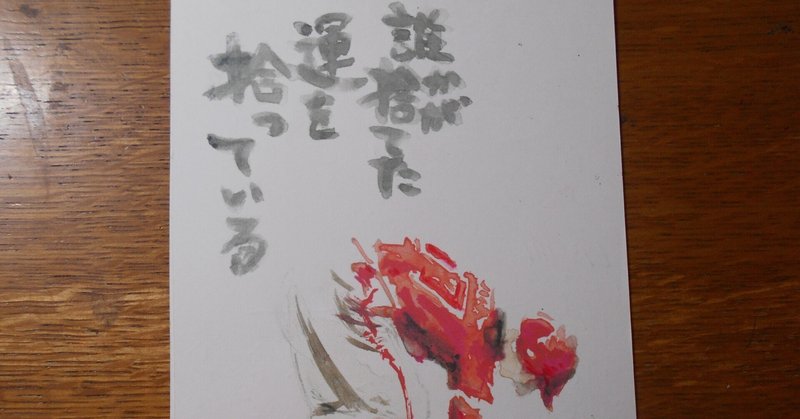 誰かが捨てた
運を
拾っている